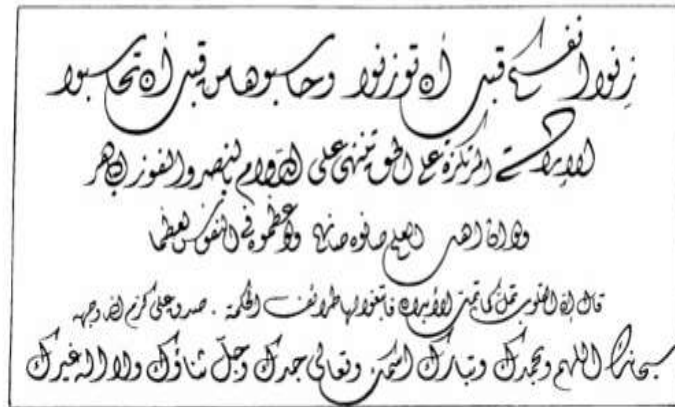 زنوا أنفسكم قبل أن توزنوا وحاسبوها من قبل أن تحاسبوا
المرتكزة على الحق تنتهي على الدوام بالنصر والفوز الباهر
ولو أن أهل العلم صانوه صانهم ولو عظموه في النفوس لعظما
قال إن القلوب تمل كما تمل الأبدان فابتغوا لها طرائف الحكمة . صدق علي كرم الله وجهه
سبحانك اللهم وبحمدك وتبارك اسمك وتعالى جدك وجل ثناؤك ولا إله غيرك